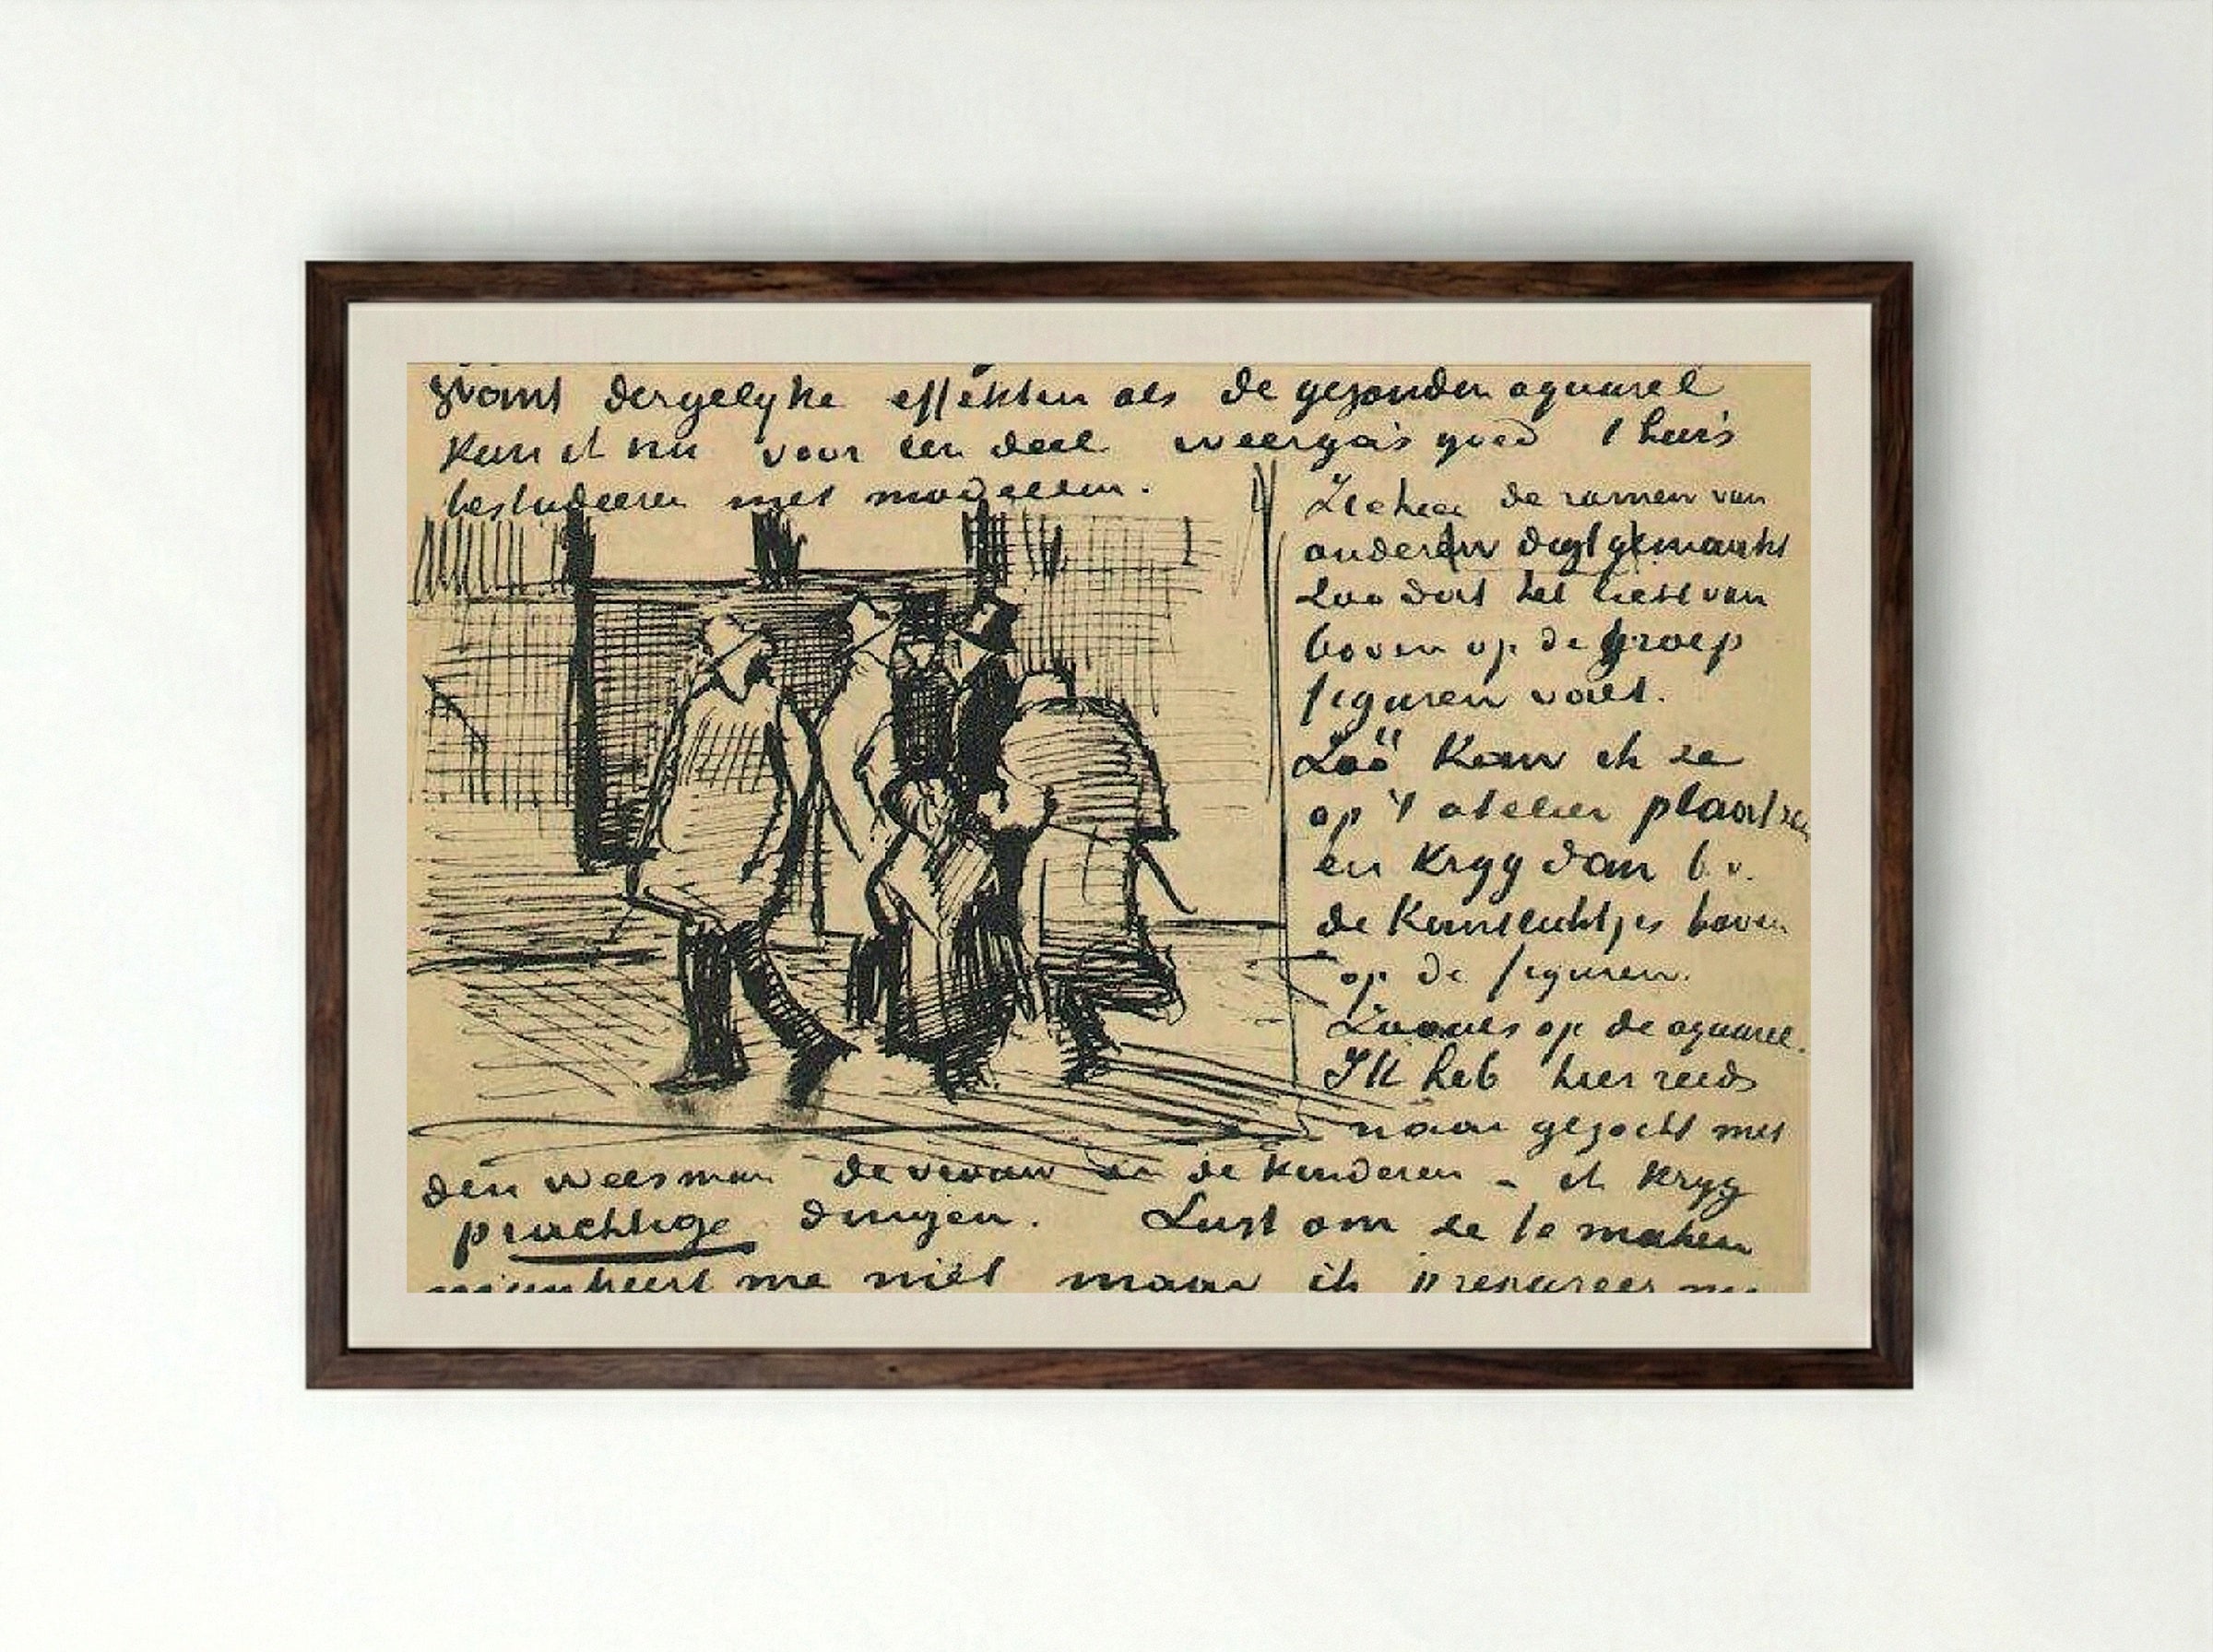 want dergelyke effekten als de gezonden aquarel
kan ik nu voor een deel weerga's goed t huis
bestudeeren met modellen.
Zie hier de ramen van
anderen digt gemaakt
Zoo dat het licht van
boven op de groep
figuren valt.
Zoo kan ik ze
op 't atelier plaatsen
en kryg dan b.v.
de kantlichtjes boven
op de figuren.
Zooals op de aquarel.
Ik heb hier reeds
naar gezocht met
den weesman de vrouw en de kinderen – ik kryg
prachtige dingen. Lust om ze te maken
mankeert me niet maar ik prepareer me